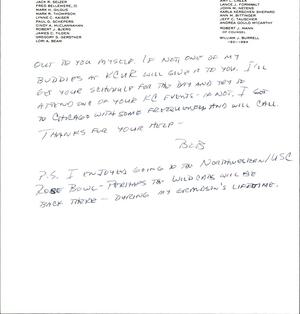 JACK R. SELZER
FRED BELLEMERE, III
MARK H. GILGUS
MARK R. THOMPSON
LYNNE C. KAISER
PAUL G. SCHEPERS
CINDY A. McCLANNAHAN
ROBERT J. BJERG
JAMES C. TILDEN
GREGORY S. GERSTNER
LORI A. BEAM
AMY L. CREEK
LANCE J. FORMWALT
JOHN M. NEYENS
KARLA KERSCHEN SHEPARD
ANN M. BETTINGER
JEFF C. TAUSCHER
ANDREA GOULD McCARTHY
ROBERT J. MANN
OF COUNSEL
WILLIAM J. BURRELL
OUT TO YOU MYSELF. IF NOT, ONE OF MY
BUDDIES AT KCUR WILL GIVE IT TO YOU. I'LL
GET YOUR SCHEDULE FOR THE DAY AND TRY TO
ATTEND ONE OF YOUR KC EVENTS - IF NOT, I GET
TO CHICAGO WITH SOME FREQUENCY AND WILL CALL.
THANKS FOR YOUR HELP -
BOB
P.S. I ENJOYED GOING TO THE NORTHWESTERN/USC
ROSE BOWL - PERHAPS THE WILDCATS WILL BE
BACK THERE - DURING MY GRANDSON'S LIFETIME.